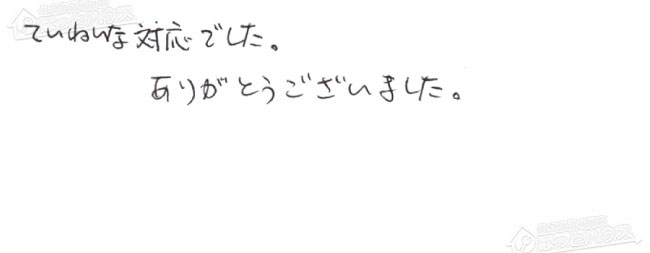 ていねいな対応でした。
ありがとうございました。